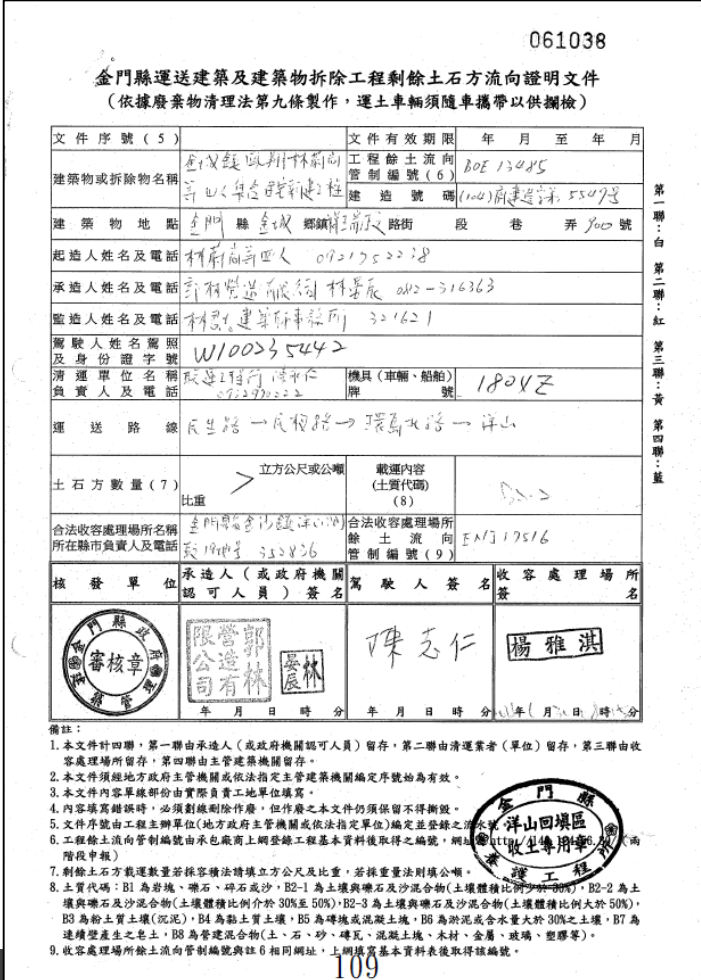 061038
金門縣運送建築及建築物拆除工程剩餘土石方流向證明文件
(依據廢棄物清理法第九條製作，運土車輛須隨車攜帶以供攔檢)
文件序號(5) 文件有效期限 年 月 至 年 月
建築物或拆除物名稱 金城鎮 工程餘土流向管制編號(6) BOE 13485
等 人集合 新建工程 建造號碼 (104)府建造 5547號
建築物地點 金門 縣 金城 鄉鎮 路街 段 巷 弄 號
起造人姓名及電話 0921752238
承造人姓名及電話 林晏辰 082-316363
監造人姓名及電話 建築師事務所 321621
駕駛人姓名駕照及身份證字號 W100235442
清運單位名稱負責人及電話 0932990222 機具(車輛、船舶)牌號 1804Z
運送路線 民生路→民權路→環島北路→洋山
土石方數量(7) 7 立方公尺或公噸 比重 載運內容(土質代碼)(8)
合法收容處理場所名稱所在縣市負責人及電話 金門縣金沙鎮洋山 352836 合法收容處理場所餘土流向管制編號(9) 17516
核發單位 承造人(或政府機關認可人員)簽名 駕駛人簽名 收容處理場所簽名
金門縣政府
審核章
郭林營造有限公司
林晏辰
陳志仁
楊雅淇
年 月 日 時 分 年 月 日 時 分 年 月 日 時 分
第一聯：白 第二聯：紅 第三聯：黃 第四聯：藍
備註：
1.本文件計四聯，第一聯由承造人(或政府機關認可人員)留存，第二聯由清運業者(單位)留存，第三聯由收
容處理場所留存，第四聯由主管建築機關留存。
2.本文件須經地方政府主管機關或依法指定主管建築機關編定序號始為有效。
3.本文件內容單線部份由實際負責工地單位填寫。
4.內容填寫錯誤時，必須劃線刪除作廢，但作廢之本文件仍須保留不得撕毀。
5.文件序號由工程主辦單位(地方政府主管機關或依法指定單位)編定並登錄之流水號
6.工程餘土流向管制編號由承包廠商上網登錄工程基本資料後取得之編號，網址 (兩
階段申報)
7.剩餘土石方載運數量若採容積法請填立方公尺及比重，若採重量法則填公噸。
8.土質代碼：B1 為岩塊、礫石、碎石或沙，B2-1 為土壤與礫石及沙混合物(土壤體積比例少於 30%)，B2-2 為土
壤與礫石及沙混合物(土壤體積比例介於 30%至 50%)，B2-3 為土壤與礫石及沙混合物(土壤體積比例大於 50%)，
B3 為粉土質土壤(沉泥)，B4 為黏土質土壤，B5 為磚塊或混凝土塊，B6 為淤泥或含水量大於 30%之土壤，B7 為
連續壁產生之皂土，B8 為營建混合物(土、石、砂、磚瓦、混凝土塊、木材、金屬、玻璃、塑膠等)。
9.收容處理場所餘土流向管制編號與註 6 相同網址，上網填寫基本資料表後取得該編號。
金門縣
洋山回填區
收土專用章
養護工程所
109